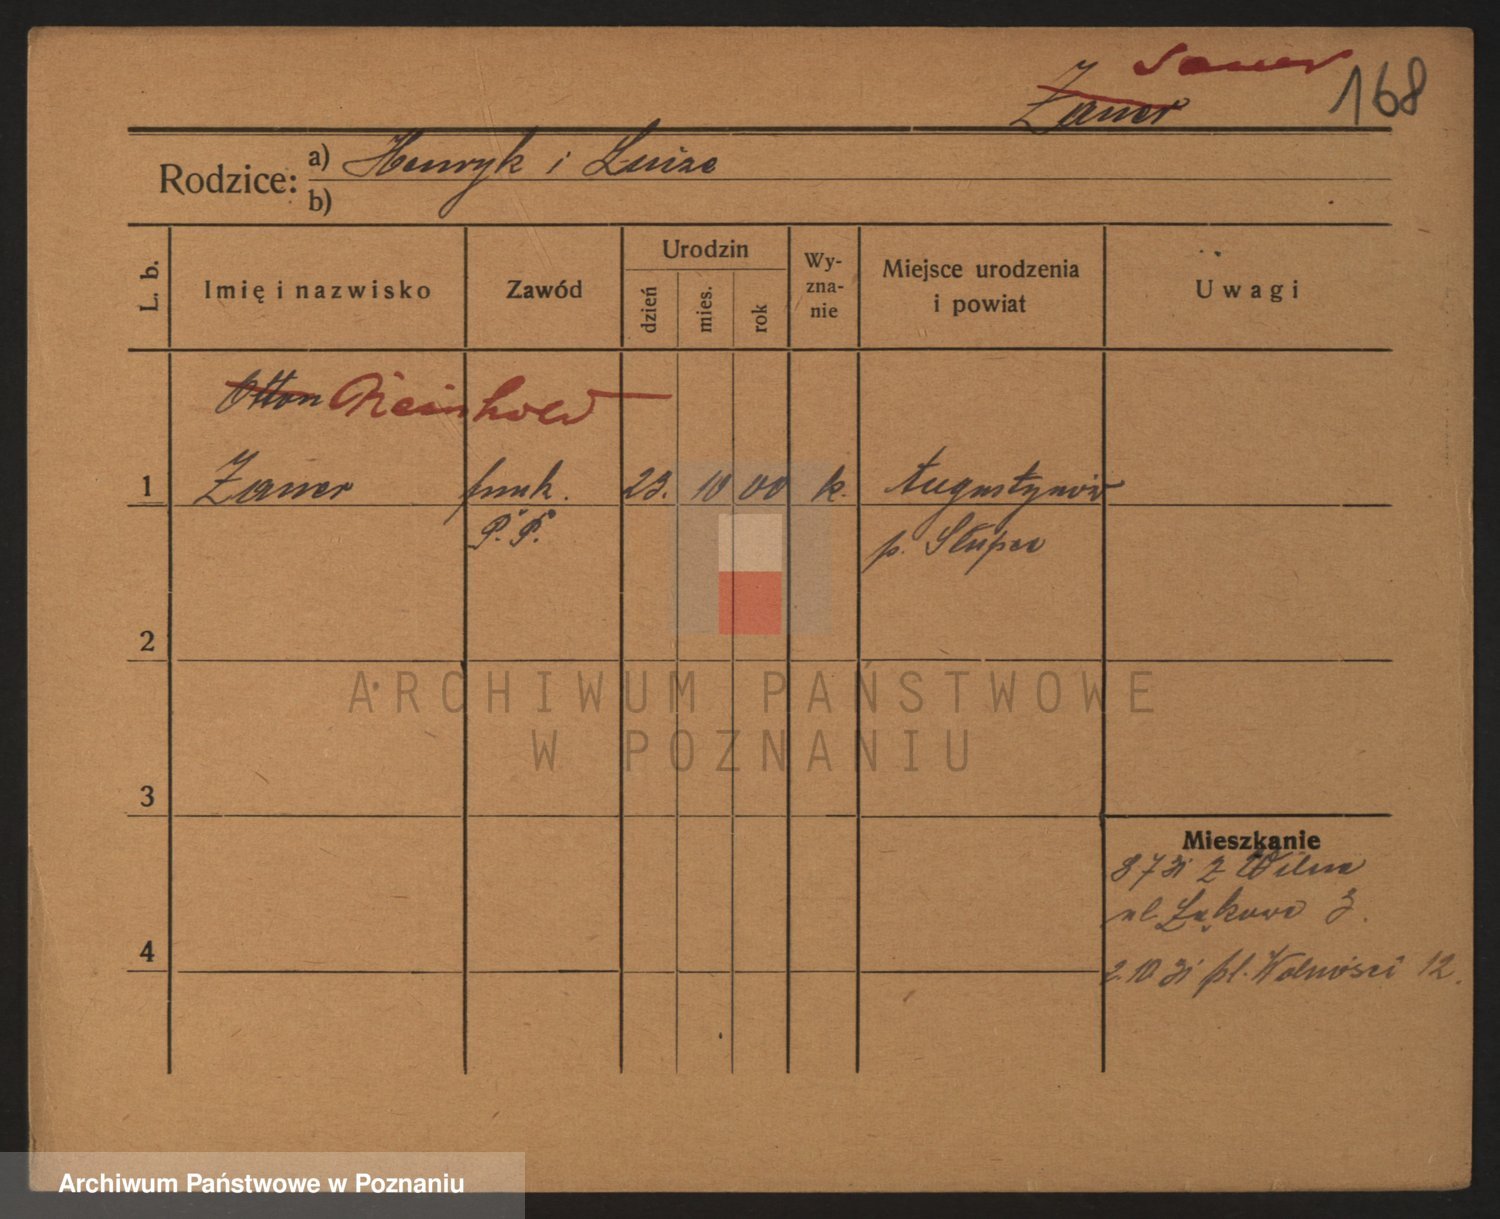 Sauer
Zauer 168
Rodzice: a) Henryk i Luiza
b)
L. b. Imię i nazwisko Zawód Urodzin dzień mies. rok Wyznanie Miejsce urodzenia i powiat Uwagi
Otton Reinhold
1 Zauer funk. 23. 10 00 k. Augustynów
P. P. p. Słupca
2
ARCHIWUM PAŃSTWOWE
W POZNANIU
3
Mieszkanie
8 7 31 z Wilna
ul. Łąkowa 3.
4 2.10 31 pl. Wolności 12.
Archiwum Państwowe w Poznaniu